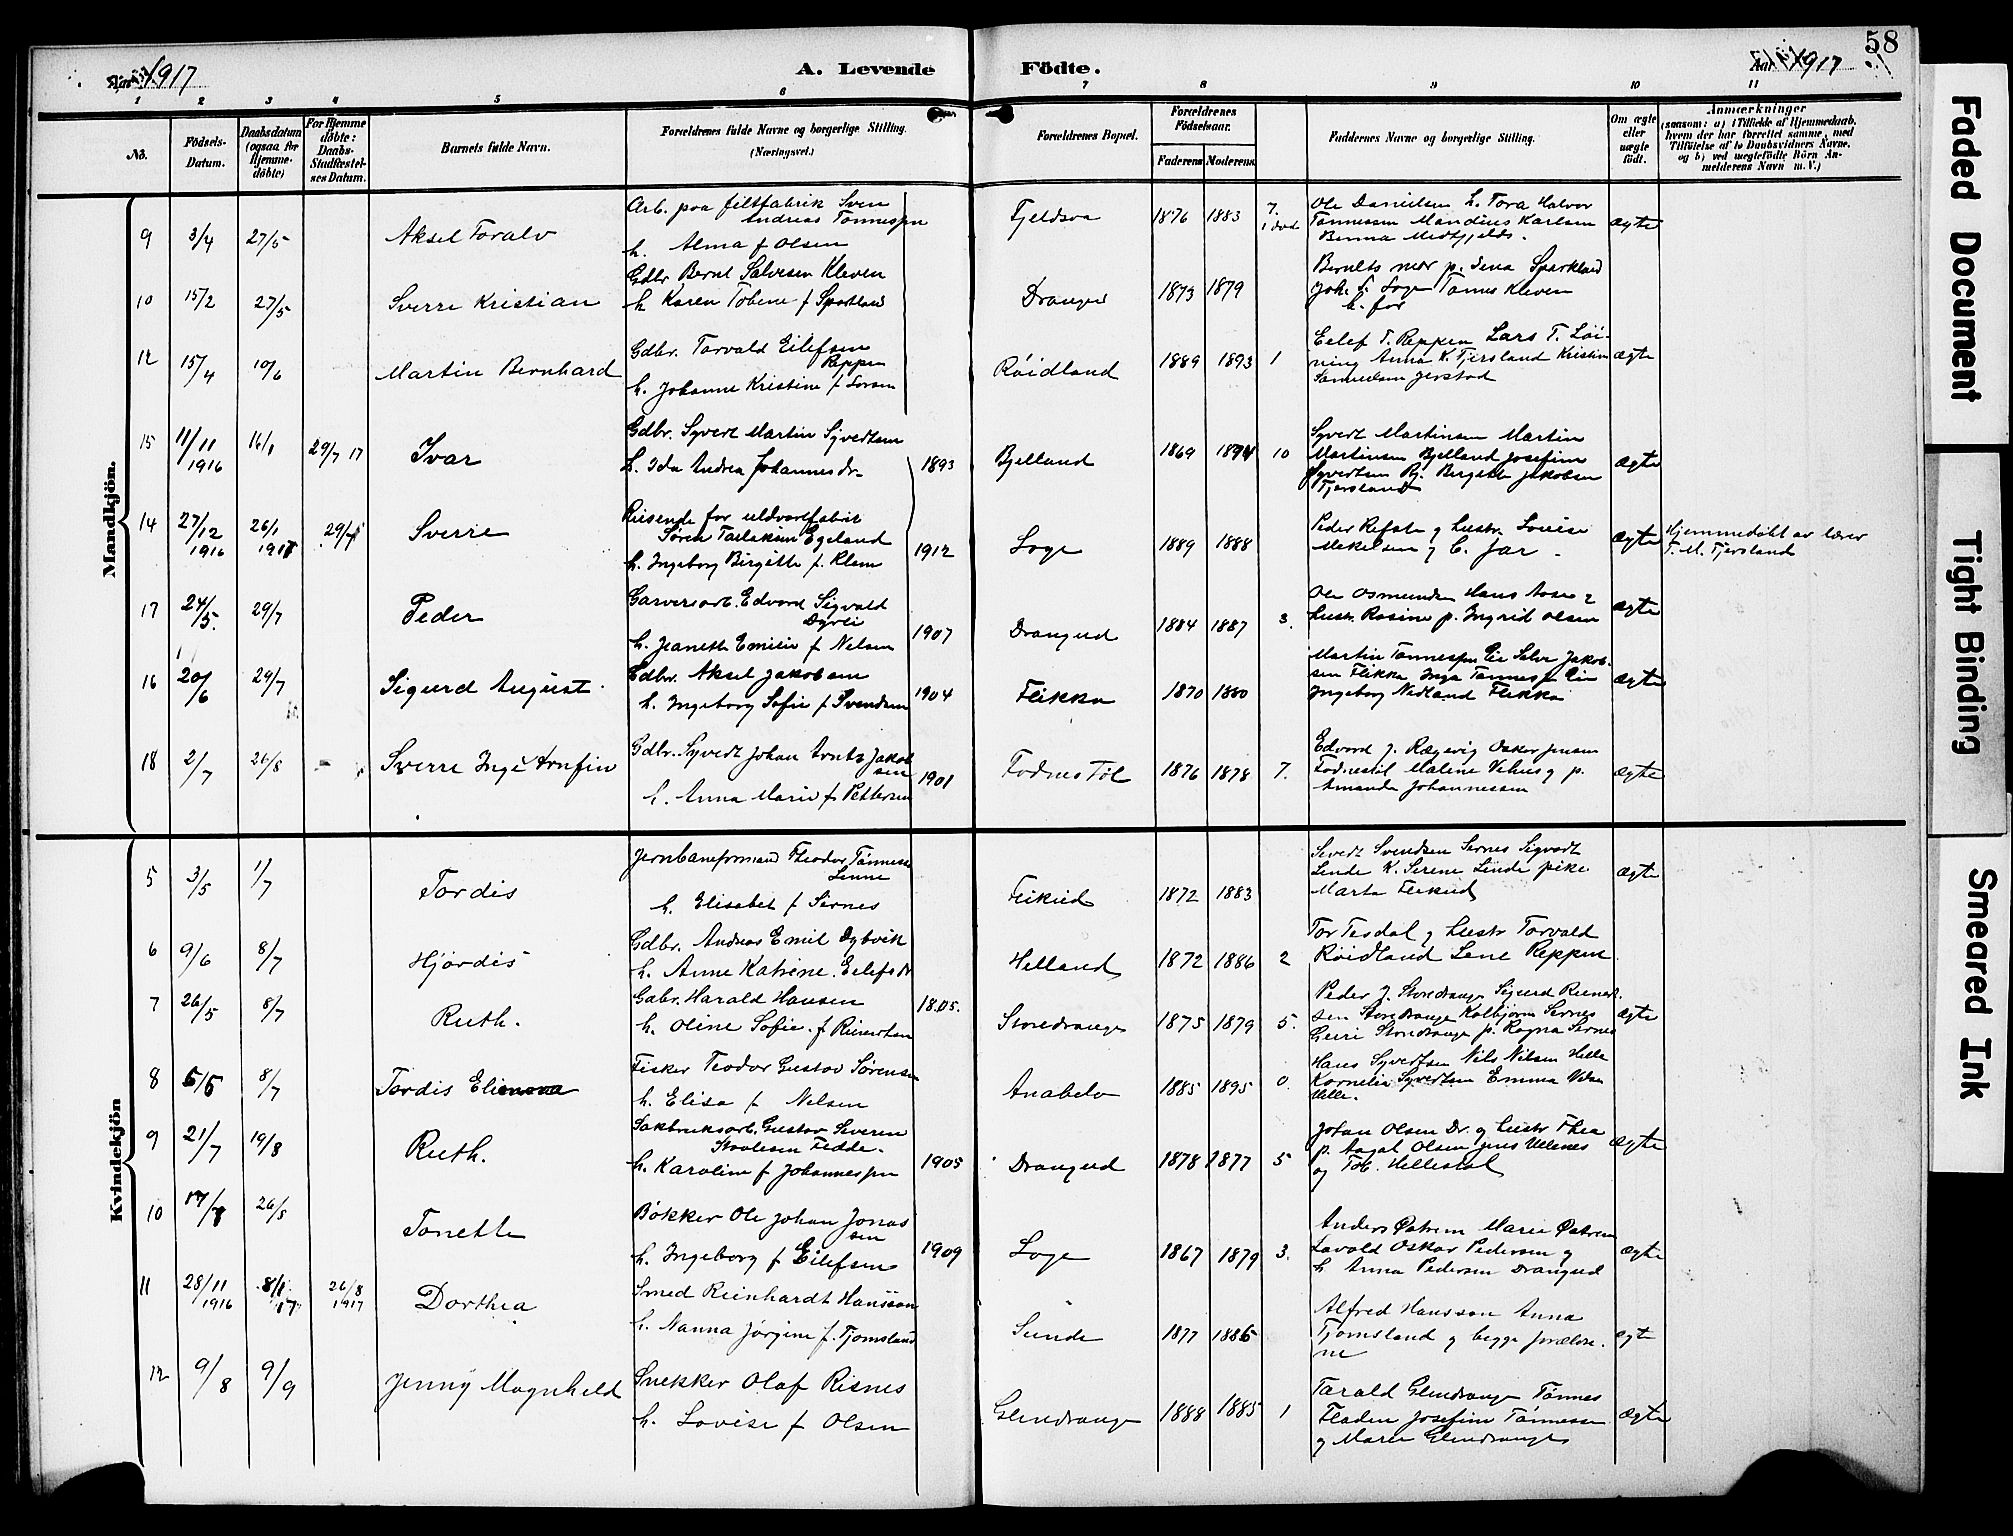 58
Aar 1917
A. Levende
Födte.
Aar 1917
1 2 3 4 5 6 7 8 9 10 11
No.
Födsels-
Datum.
Daabsdatum
(ogsaa for
Hjemme-
döbte)
For Hjemme
döbte:
Daabs-
Stadfæstel-
ses Datum.
Barnets fulde Navn.
Forældrenes fulde Navne og borgerlige Stilling.
(Næringsvei.)
Forældrenes Bopæl.
Forældrenes
Födselsaar.
Faderens Moderens
Faddernes Navne og borgerlige Stilling.
Om ægte
eller
uægte
födt.
Anmærkninger
(saasom: a) i Tilfælde af Hjemmedaab,
hvem der har forrettet samme, med
Tilföielse af to Daabsvidners Navne,
og b) ved uægtefödte Börn An-
melderens Navn m. V.)
Mandkjön.
9 3/4 27/5 Aksel Toralv
Arb. paa filtfabrik Sven
Andreas Tønnessen
h. Alma f Olsen
Fjeldsaa 1876 1883 7. 1 død
Ole Danielsen h. Tora Halvor
Tønnessen Mandius Karlsen
Benna Midtfjelds.
ægte
10 15/2 27/5 Sverre Kristian
Gdbr Bernt Salvesen Kleven
h Karen Tobene f Sparkland
Dranged 1873 1879
Bernts mor p. Lena Sparkland
Joh. L. Loge Tønnes Kleven
h. far
12 15/4 10/6 Martin Bernhard
Gdbr. Torvald Eilefsen
Reppen
h. Johanne Kristine f
Røidland 1889 1893 1
Eilef T. Reppen Lars T. Løi-
ning Anna K. Tjersland Kristin
Samuelsen Jerstad
ægte
15 11/11 1916 16/1 29/7 17 Ivar
Gdbr. Syvert Martin Syvertsen
h. Ida Andrea Johannesdr
1893 Bjelland 1869 1874 10
Syvert Martinsen Martin
Martinsen Bjelland Josefine
Syvertsen Bj. Birgitte Jakobsen
Tjersland
ægte
14 27/12 1916 26/1 1917 29/7 Sverre
Reisende for uldvarefabrik
Søren Tarlaksen Egeland
h. Ingeborg Birgitte f.
1912 Loge 1889 1888
Peder Refste g hustr. Lovise
Mekelsen g B. far -
ægte Hjemmedøbt av lærer
T. M. Tjersland
17 24/5. 29/7 Peder
Garveriarb. Edvard Sigvald
Dyrli
h. Jeanette Emilie f Nelsen
1907 Dranged 1884 1887 3.
Ole Osmundsen Hans Aase 2
hustr. Rosine p. Ingrid Olsen
ægte
16 20/6 29/7 Sigurd August.
Gdbr. Aksel Jakobsen
h. Ingeborg Sofie f Svendsen
1904 Flikka 1870 1880
Martin Tønnessen Eie Salve Jakob-
sen Flikka Inga Tønnessen Eie
Ingeborg Nedland Flikka
ægte
18 2/7 26/8 - Sverre Inge Arnfin
Gdbr. Syvert Johan Arntz Jakob
sen
h. Anna Marie f Pettersen
1901 Fodnestøl 1876 1878 7.
Edvard J. Rægevig Oskar Jensen
Fodnestøl Malene Vehus g p.
Amanda Johannessen
ægte
Kvindekjön
5 3/5 1/7 Tordis
Jernbaneformand Theodor Tønnesse
Linne
h. Elisabet f Sirnes
Feikied 1872 1883
Severt Svendsen Sirnes Sigvart
Linde K. Serene Linde pike
Marta Feikied
ægte
6 9/6 8/7 Hjørdis
Gdbr. Andreas Emil Dybvik
h. Anne Katrine Eilefsdr
Helland 1872 1886 2
Tor Tesdal g hustr Torvald
Røidland Lene Reppen.
7 26/5 8/7 Ruth.
Gdbr. Harald Hansen
h. Oline Sofie f Reinertsen
1805. Storedrange 1875 1879 5.
Peder J. Storedrange Sigurd Reinert-
sen Storedrange Kolbjørn Sirnes
Guri Storedrange p. Ragna Sirnes
ægte
8 5/5 8/7 Tordis Elienora
Fisker Teodor Gustav Sørensen
h. Elisa f Nelsen
Anabelø 1885 1895 0.
Hans Syvertsen Nils Nilsen Helle
Kornelia Syvertsen Emma
Helle.
9 21/7 19/8 Ruth.
Sakbruksarb. Gustav Severin
Staalesen Fedde.
h. Karoline f Johannessen
1905 Dranged 1878 1877 5
Johan Olsen Dr. g hustr Thea
p. Aagat Olsen Jens Ulenes
og Tob. Hellestøl
ægte
10 17/7 26/8 Tonette
Bøkker Ole Johan Jonas
sen
h. Ingeborg f Eilefsen
1909 Loge 1867 1879 3.
Anders Østrem Marie Østrem
Lavold Oskar Pedersen g
h Anna Pedersen Dranged
ægte
11 28/11 1916 8/1 17 26/8 1917 Dorthea
Smed Reinhardt Hansson
h. Nanna Jørgine f. Tjomsland
Sunde 1877 1886
Alfred Hansson Anna
Tjomsland g begge foreldre.
ne
ægte
12 9/8 9/9 Jenny Magnhild
Snekker Olaf Risnes
h. Lovise f Olsen
Glendrange 1888 1885 1
Tarald Glendrange Tønnes
Fladen Josefine Tønnessen
g Marie Glendrange
ægte
Faded Document
Tight Binding
Smeared Ink